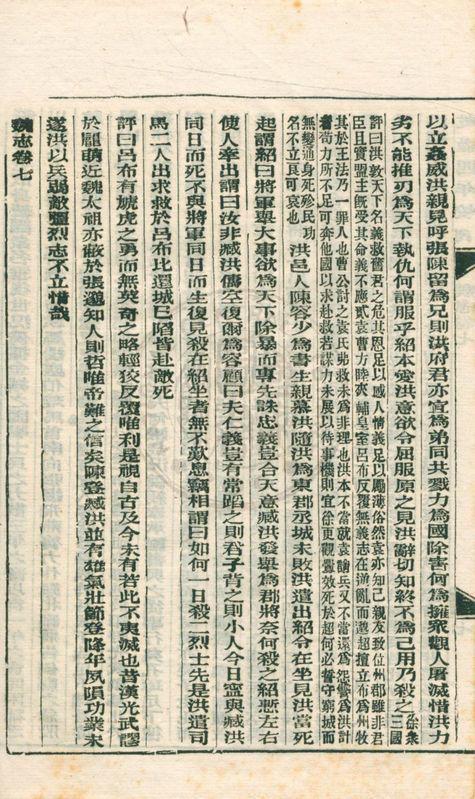 以立姦威洪親見呼張陳留爲兄則洪府君亦宜爲弟同共戮力爲國除害何爲擁衆觀人屠滅惜洪力
劣不能推刃爲天下執仇何謂服乎紹本愛洪意欲令屈服原之見洪辭切知終不爲己用乃殺之徐衆三國
評曰洪敦天下名義救舊君之危其恩足以感人情義足以勵薄俗然袁亦知己親友致位州郡雖非君
臣且實盟主旣受其命義不應貳袁曹方睦夾輔王室呂布反覆無義志在逆亂而邈超擅立布爲州牧
其於王法乃一罪人也曹公討之袁氏弗救未爲非理也洪本不當就袁請兵又不當還爲怨讎爲洪計
者苟力所不足可奔他國以求赴救若謀力未展以待事機則宜徐更觀釁效死於超何必誓守窮城而
無變通身死殄民功
名不立良可哀也
洪邑人陳容少爲書生親慕洪隨洪爲東郡丞城未敗洪遣出紹令在坐見洪當死
起謂紹曰將軍舉大事欲爲天下除暴而專先誅忠義豈合天意臧洪發舉爲郡將奈何殺之紹慙左右
使人牽出謂曰汝非臧洪儔空復爾爲容顧曰夫仁義豈有常蹈之則君子背之則小人今日寧與臧洪
同日而死不與將軍同日而生復見殺在紹坐者無不歎息竊相謂曰如何一日殺二烈士先是洪遣司
馬二人出求救於呂布比還城已陷皆赴敵死
評曰呂布有虓虎之勇而無英奇之略輕狡反覆唯利是視自古及今未有若此不夷滅也昔漢光武謬
於龐萌近魏太祖亦蔽於張邈知人則哲唯帝難之信矣陳登臧洪並有雄氣壯節登降年夙隕功業未
遂洪以兵弱敵彊烈志不立惜哉
魏志卷七